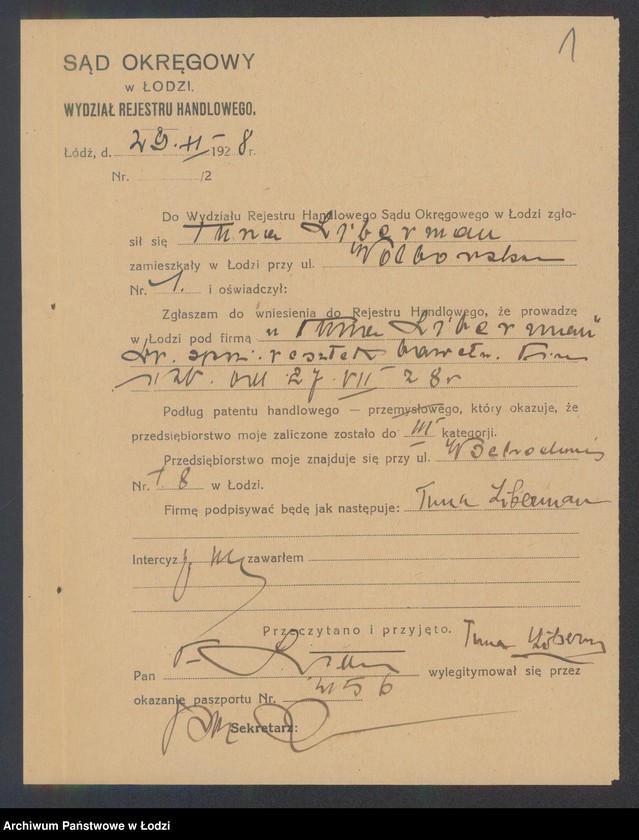 1
SĄD OKRĘGOWY
W ŁODZI.
WYDZIAŁ REJESTRU HANDLOWEGO.
Łódź, d. 29.XI 1928 r.
Nr. /2
Do Wydziału Rejestru Handlowego Sądu Okręgowego w Łodzi zgło-
sił się Liberman
zamieszkały w Łodzi przy ul. Wolborska
Nr. 1. i oświadczył:
Zgłaszam do wniesienia do Rejestru Handlowego, że prowadzę
w Łodzi pod firmą „ Liberman"
resztek bawełn.
27 VII 28 r
Podług patentu handlowego — przemysłowego, który okazuje, że
przedsiębiorstwo moje zaliczone zostało do III kategorji.
Przedsiębiorstwo moje znajduje się przy ul. Wschodniej
Nr. 18 w Łodzi.
Firmę podpisywać będę jak następuje: Liberman
Intercyz zawarłem
Przeczytano i przyjęto.
Pan wylegitymował się przez
okazanie paszportu Nr.
Sekretarz:
Archiwum Państwowe w Łodzi